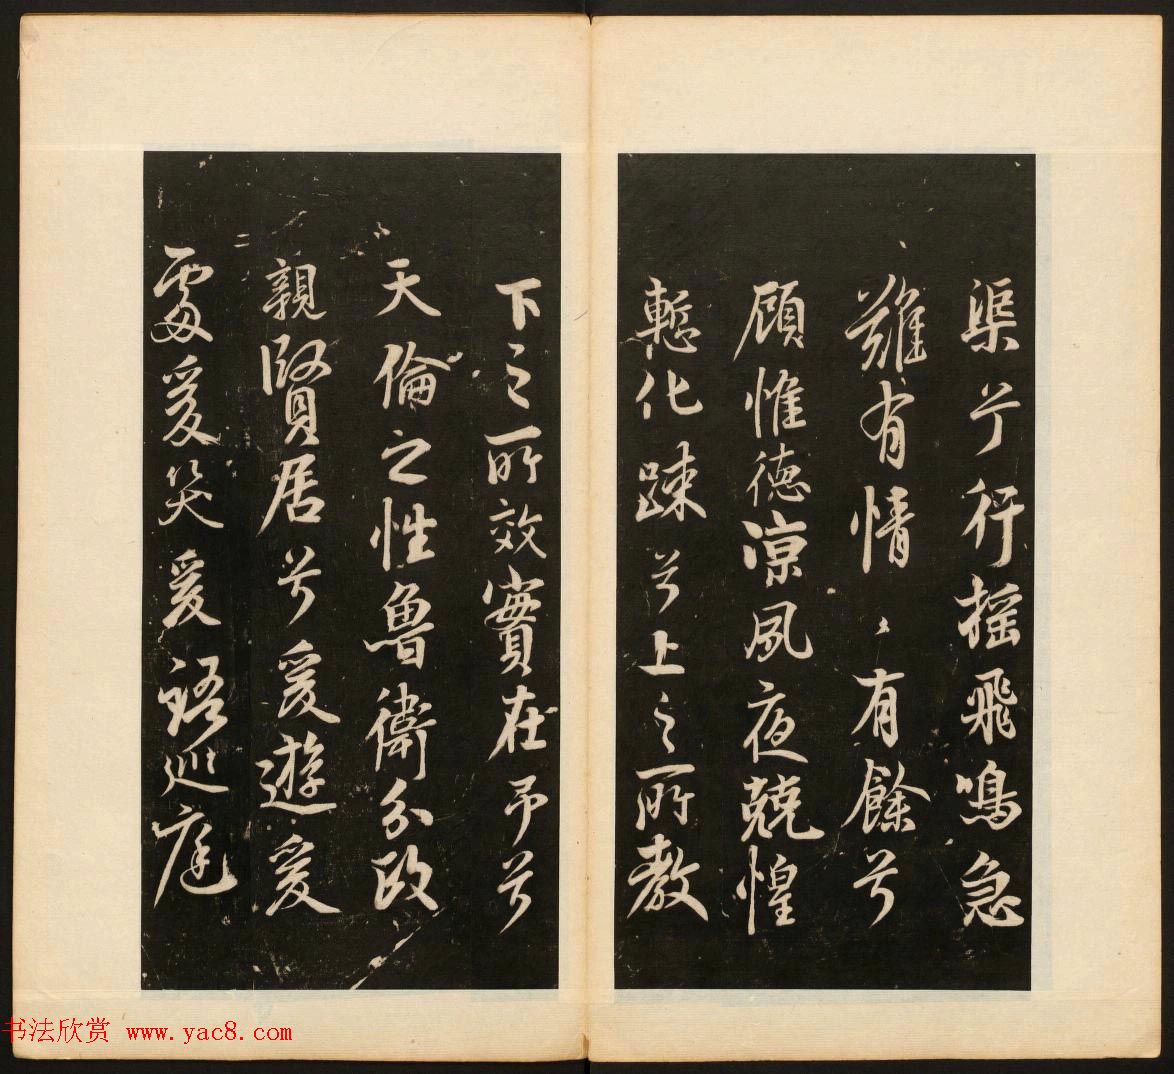 渠兮行摇飛鳴急
難有情〻有餘兮
顧惟德涼夙夜兢惶
慙化踈兮上之所教
下之所效實在予兮
天倫之性魯衛分政
親賢居兮爰遊爰
處爰笑爰語巡庭
书法欣赏 www.yac8.com